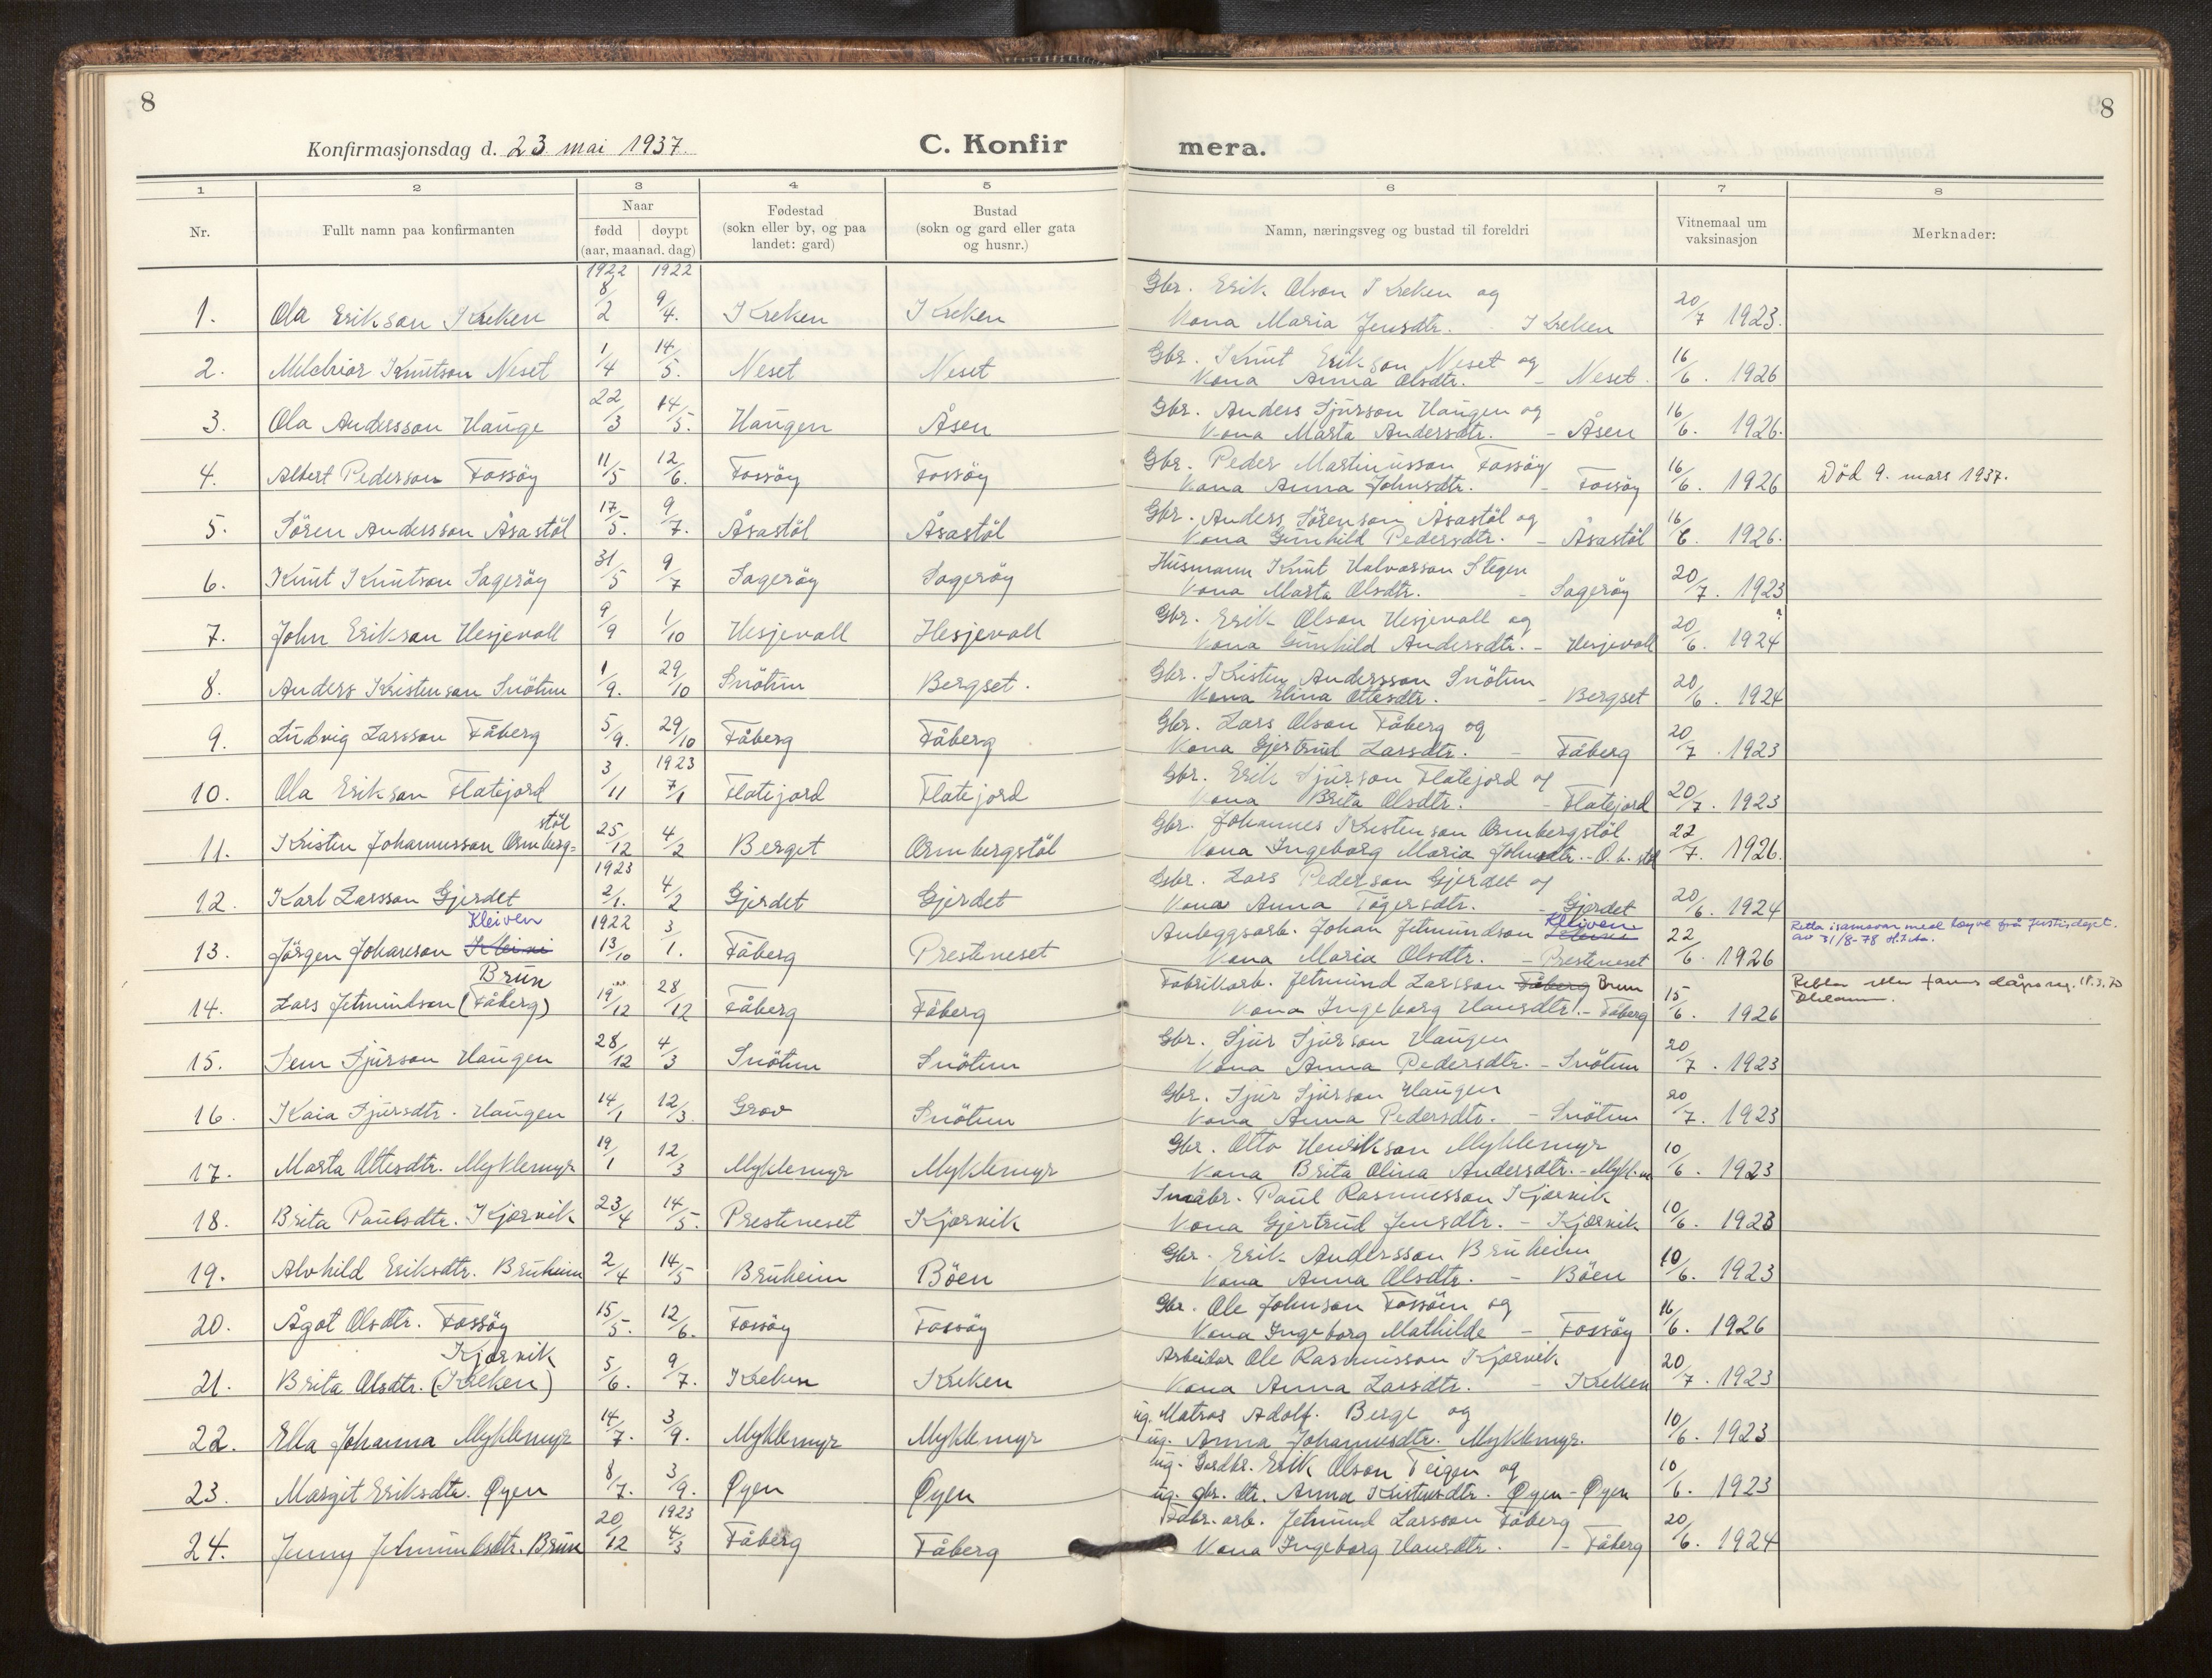 8
Konfirmasjonsdag d. 23. mai 1937.
C. Konfirmera.
8
1 2 3 4 5 6 7 8
Nr.
Fullt namn paa konfirmanten
Naar
fødd døypt
(aar, maanad. dag)
Fødestad
(sokn eller by, og paa
landet: gard)
Bustad
(sokn og gard eller gata
og husnr.)
Namn, næringsveg og bustad til foreldri
Vitnemaal um
vaksinasjon
Merknader:
1922 1922
1. Ola Erikson Kreken 8/2 9/4. Kreken Kreken Gbr. Erik Olson Kreken og
Kona Maria Jensdtr. Kreken 20/7 1923.
2. Melchior Knutson Neset 1/4 14/5. Neset Neset Gbr. Knut Erikson Neset og
Kona Anna Olsdtr. - Neset. 16/6. 1926
3. Ola Andersson Hauge 22/3 14/5. Haugen Åsen Gbr. Anders Sjurson Haugen og
Kona Marta Andersdtr. - Åsen 16/6. 1926.
4. Albert Pederson Fossöy 11/5 12/6. Fossöy Fossöy Gbr. Peder Martinusson Fossöy
Kona Anna Johnsdtr. - Fossöy 16/6. 1926 Död 9. mars 1937.
5. Sören Andersson Åsastöl 17/5. 9/7. Åsastöl Åsastöl Gbr. Anders Sörenson Åsastöl og
Kona Gunhild Pedersdtr. - Åsastöl 16/6. 1926.
6. Knut Knutson Sageröy 31/5 9/7 Sageröy Sageröy Husmann Knut Halvorson Stegen
Kona Marta Olsdtr. - Sageröy 20/7. 1923
7. John Erikson Hesjevoll 9/9 1/10 Hesjevoll Hesjevoll Gbr. Erik Olson Hesjevoll og
Kona Gunhild Andersdtr. - Hesjevoll 20/6. 1924
8. Anders Kristenson Snötun 1/9. 29/10 Snötun Bergset. Gbr. Kristen Andersson Snötun
Kona Elina Ottesdtr. - Bergset 20/6. 1924
9. Ludvig Larsson Fåberg 5/9. 29/10 Fåberg Fåberg Gbr. Lars Olson Fåberg og
Kona Gjertrud Larsdtr. - Fåberg 20/7. 1923
1923
10. Ola Erikson Flatejord 3/11 7/1 Flatejord Flatejord Gbr. Erik Sjurson Flatejord og
Kona Brita Olsdtr. - Flatejord 20/7. 1923
stöl
11. Kristen Johannusson Ormberg= 25/12 4/2 Berget Ormbergstöl Gbr. Johannes Kristenson Ormbergstöl
Kona Ingeborg Maria Johnsdtr. - O.b. stöl 22/7. 1926.
1923
12. Karl Larsson Gjerdet 2/1. 4/2 Gjerdet Gjerdet Gbr. Lars Pederson Gjerdet og
Kona Anna Tögersdtr. - Gjerdet 20/6. 1924
Kleiven 1922 Kleiven
13. Jörgen Johanson 13/10 3/1. Fåberg Presteneset Anleggsarb. Johan Jetmundson
Kona Maria Olsdtr. - Presteneset 22/6. 1926 Retta i samsvar med løyve frå Justisdept.
av 31/8-78
Brun
14. Lars Jetmundson (Fåberg) 19/12 28/12 Fåberg Fåberg Fabrikarb. Jetmund Larsson Fåberg Brun
Kona Ingeborg Hansdtr. - Fåberg 15/6. 1926
15. Jem Sjurson Haugen 28/12 4/3 Snötun Snötun Gbr. Sjur Sjurson Haugen
Kona Anna Pedersdtr. - Snötun 20/7. 1923
16. Kaia Sjursdtr. Haugen 14/1 12/3. Grov Snötun Gbr. Sjur Sjurson Haugen
Kona Anna Pedersdtr. - Snötun 20/7. 1923
17. Marta Ottesdtr. Myklemyr 19/1 12/3 Myklemyr Myklemyr Gbr. Otto Henrikson Myklemyr
Kona Brita Olina Andersdtr. - Mykl.m 10/6. 1923
18. Brita Paulsdtr. Kjørvik 23/4 14/5. Presteneset Kjørvik Småbr. Paul Rasmusson Kjørvik
Kona Gjertrud Jensdtr. - Kjørvik 10/6. 1923
19. Alvhild Eriksdtr. Bruheim 2/4 14/5 Bruheim Böen Gbr. Erik Andersson Bruheim
Kona Anna Olsdtr. - Böen 10/6. 1923
20. Ågot Olsdtr. Fossöy 15/5. 12/6. Fossöy Fossöy Gbr. Ole Johnson Fossöen og
Kona Ingeborg Mathilde - Fossöy 16/6. 1926
Kjørvik
21. Brita Olsdtr. (Kreken) 5/6. 9/7. Kreken Kreken Arbeidar Ole Rasmusson Kjørvik
Kona Anna Larsdtr. - Kreken 20/7. 1923
22. Ella Johanna Myklemyr 14/7. 3/9. Myklemyr Myklemyr ug. Matros Adolf. Berge og
ug. Anna Johannesdtr. Myklemyr. 10/6. 1923
23. Margit Eriksdtr. Øyen 8/7. 3/9. Øyen Øyen ug. Gardbr. Erik Olson Teigen og
ug. gbr. dtr. Anna Kristensdtr. Øyen - Øyen 10/6. 1923
1923
24. Jenny Jetmundsdtr. Brun 20/12 4/3 Fåberg Fåberg Fabr. arb. Jetmund Larsson Fåberg
Kona Ingeborg Hansdtr. - Fåberg 20/6. 1924